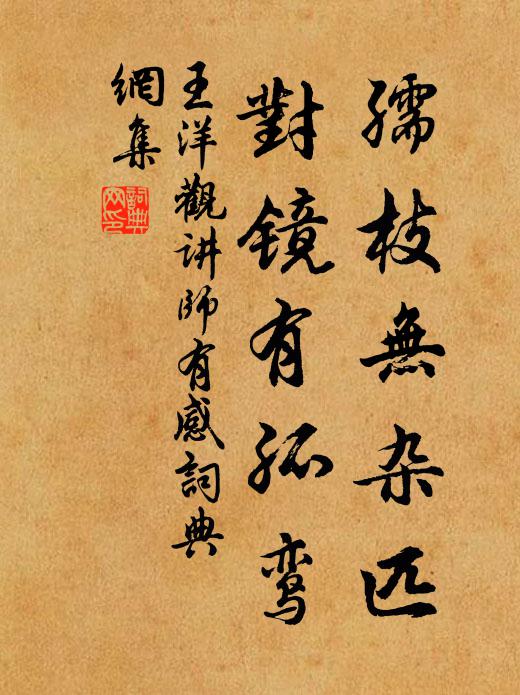 孺枝無杂匹
對镜有孤鸾
王洋觀讲師有感詞典
網集
詞典
网印